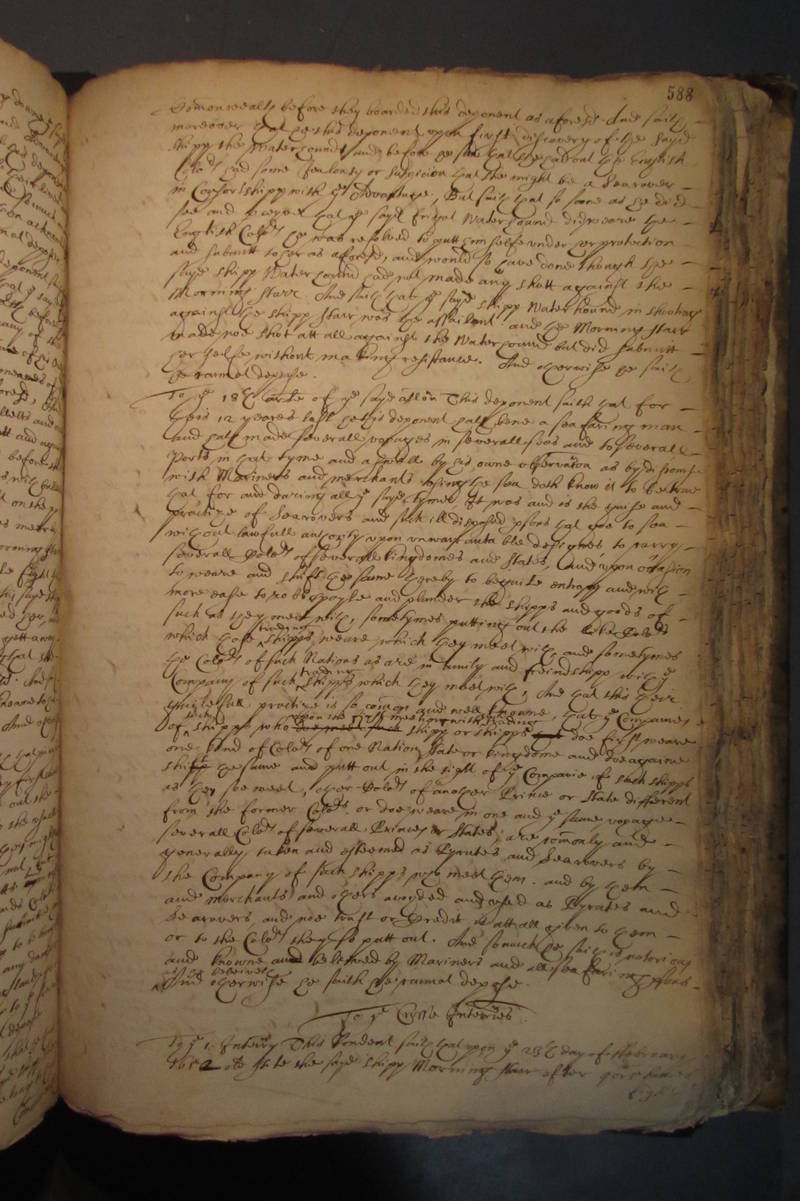 588
Comonwealth before they boarded this deponent as aforesd. And saith
moreover that hee this deponent upon first discovery of the sayd
shipp the Waterhound and before he saw that shee carried the English
Colors had some Jealousy or suspicion that she might be a Searover
in Consortshipp with ye Advantage, But saith that so soone as he did
see and perceive that ye sayd frigat Waterhound did weare the
English Colors he was resolved to putt himselfe under her protection
and submitt to her as aforesd, and would so have done though the
sayd shipp Waterhound had not made any shott against the
Morning Starr. And saith that ye sayd shipp Waterhound in shooting
against the shipp Starr was the assailant and the Morning Starr
made noe shot att all against the Waterhound but did submitt
her selfe without making resistance. And otherwise he saith
he cannot depose.
To ye 18th arle of ye sayd allon This deponent saith that for
theis 12 yeares last hee this deponent hath bene a sea faring man
and hath made severall voyages in severall seas and to severall
Ports in that tyme and aswell by his owne observation as by
with Mariners and merchants using the sea doth know it to be true
that for and during all ye sayd tyme It was and is the use and
practize of Searovers and such ill disposed psons that goe to sea
without lawfull authority upon unwarrantable designes to carry
severall Colors of severall kingdomes and States, And upon occasion
to weare and shift the same thereby to beguile and with
more ease to robb spoyle and plunder the shipps and goods of
such as they meet with, sometymes putting out the like Colors
which those trading shipps weare which they meet with and sometymes
the Colors of such Nations as are in amity and freindshipp with ye
Company of such trading shipps which they meet with, And that this their
practize is so comon and well knowne, that ye Companies
of such shipps who upon the first meeting with trading shipp or shipps doe first weare
one kind of Colors of one Nation State or kingdome and doe againe
shift the same and putt out in the sight of ye Companie of such shipps
as they soe meet, other Colors of another Prince or State different
from the former Colors or doe weare in one and ye same voyage
severall Colors of severall Princes & States, are comonly and
generally taken and esteemed as Pyrates and Searovers by
the Company of such shipps who meet them. and by them
and merchants and others avoyded and used as Pyrates and
Searovers and noe trust or Credit is att all given to them
or to the Colors they so putt out. And so much he saith is notorious
and knowne and beleived by Mariners and all sea faring psons
as he beleiveth
And otherwise he saith he cannot depose.
To ye Crosse Interries
To ye 1. Interry This Rondent saith that upon ye 28th day of
1652 old stile the sayd shipp Morning Starr after